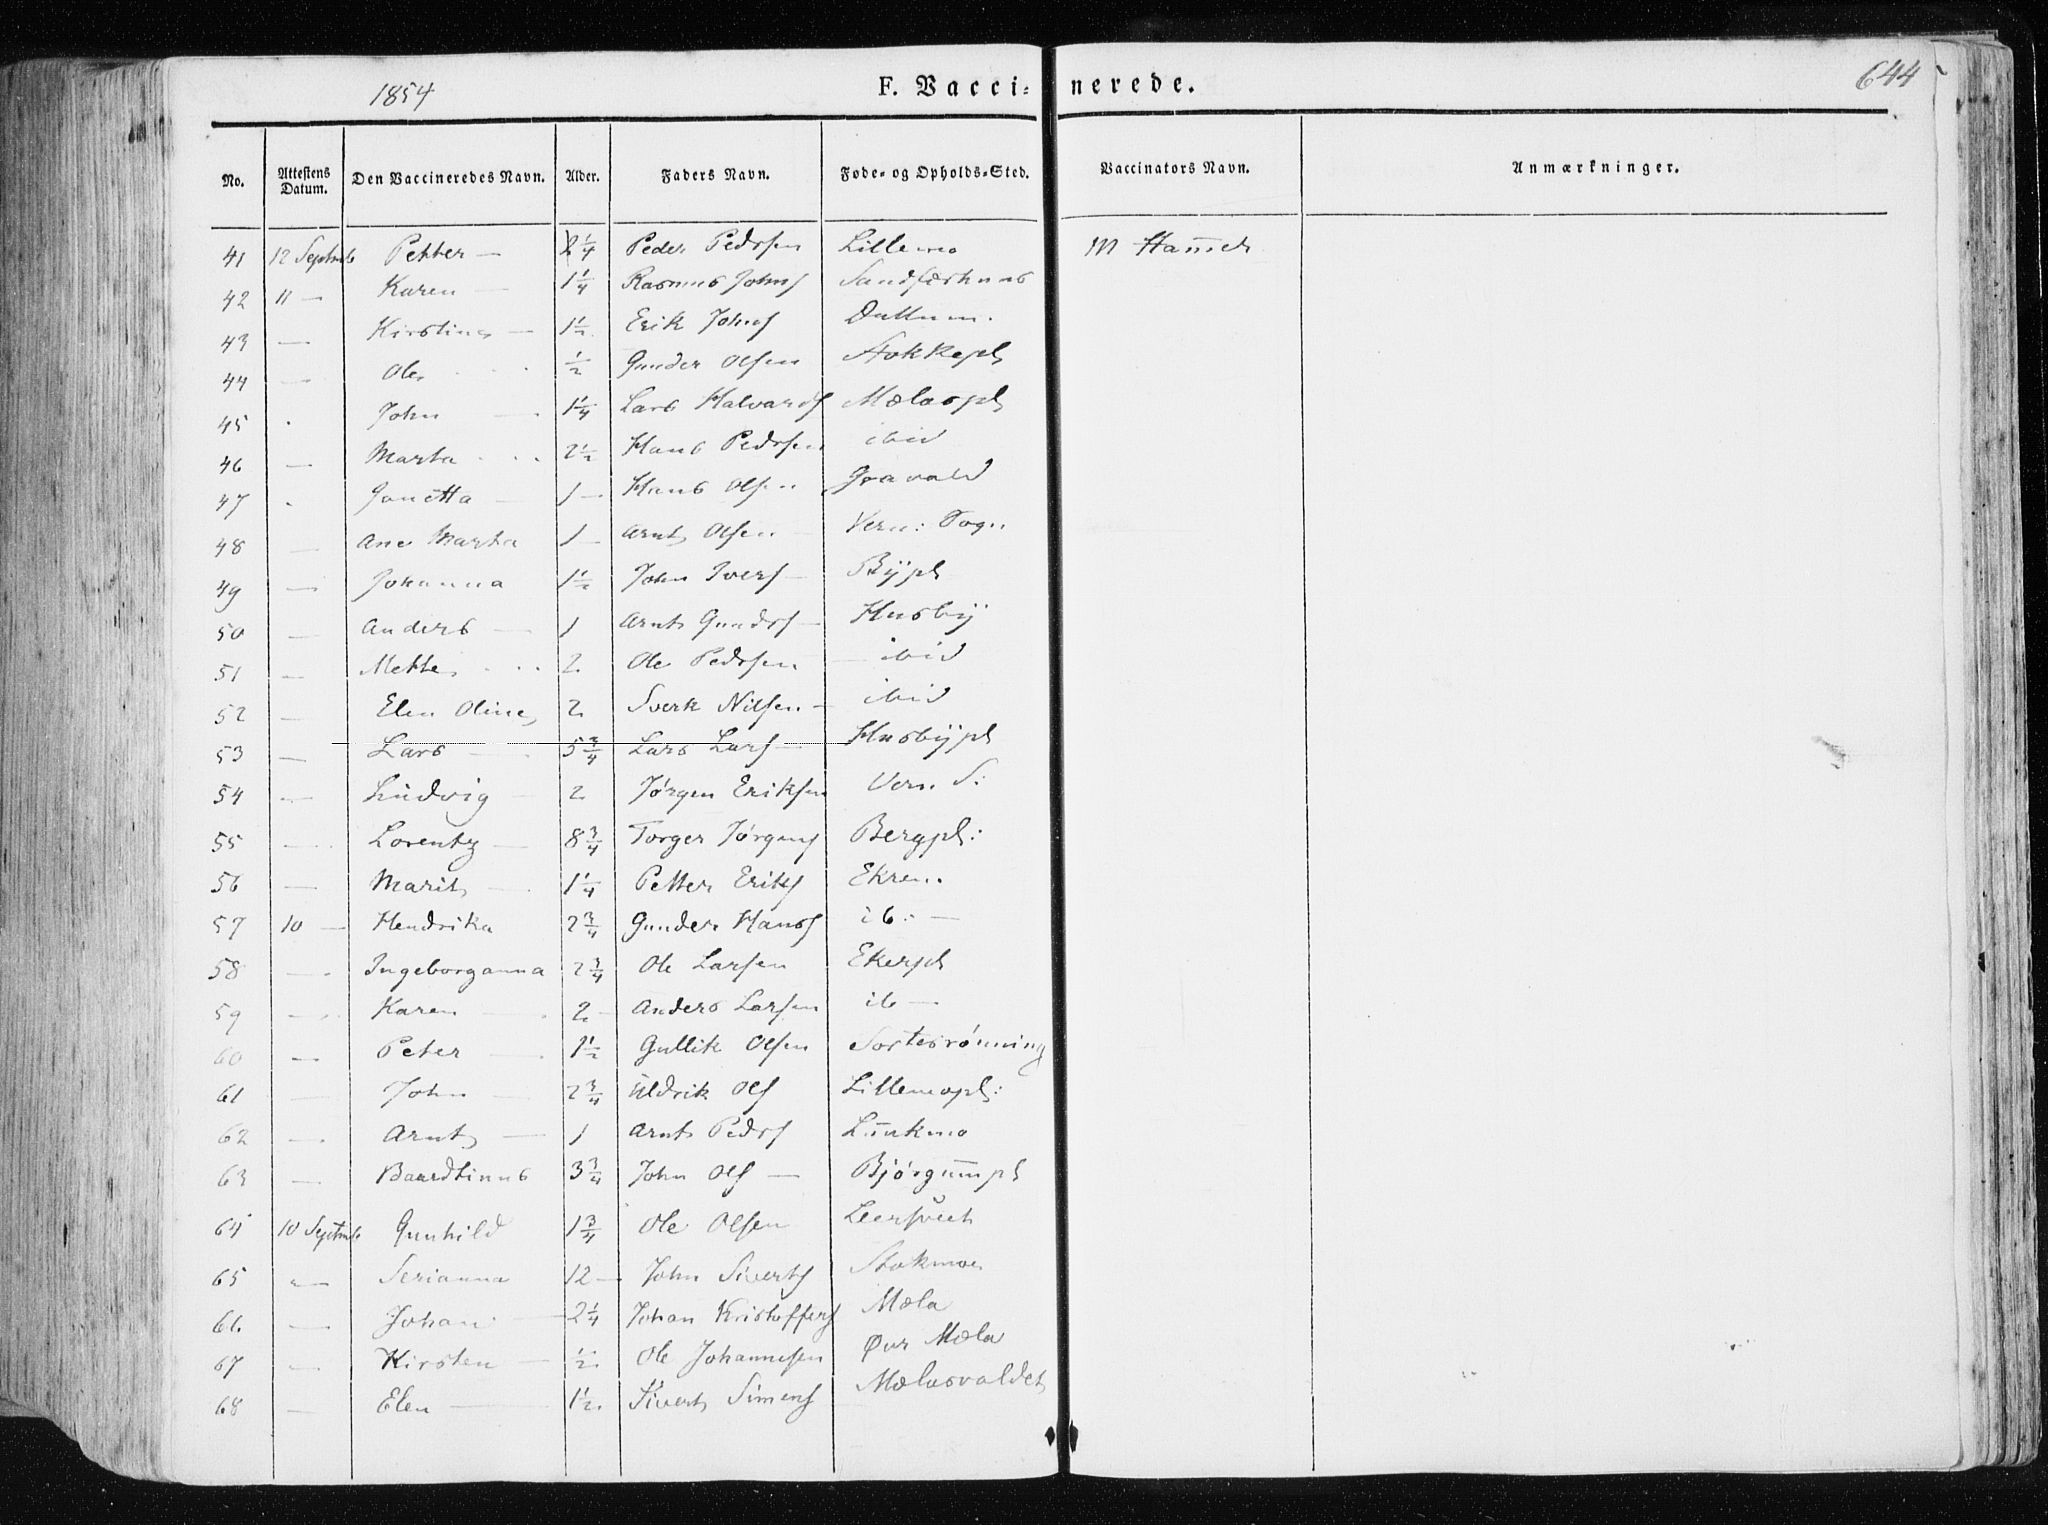 1854 F. Vaccinerede. 644
No. Attestens Datum. Den Vaccineredes Navn. Alder. Faders Navn. Føde- og Opholds-Sted. Vaccinators Navn. Anmærkninger.
41 12 Septmb Petter — 2 1/4 Peder Pedrsen Lillemo M Ham̅er
42 11 — Karen — 1 1/4 Rasmus Johns Sandfærhuus
43 — Kirstine — 1 1/2 Erik Johns
44 — Ole 1/2 Gunder Olsen Stokkepl
45 John 1 1/4 Lars Halvards Mælaspl
46 — Marta 2 1/2 Hans Pedrsen ibid
47 Jonetta — 1 — Hans Olsen Gravald
48 — Ane Marta 1 — Arnt Olsen — Vern: Sogn
49 — Johanna 1 1/2 John Ivers — Bÿpl
50 — Anders — 1 Arnt Gundrs — Husbÿ
51 — Mette 2 Ole Pedrsen — ibid
52 — Elen Oline 2 Sverk Nilsen — ibid
53 — Lars — 5 3/4 Lars Lars — Husbÿpl
54 — Ludvig — 2 Jørgen Eriksen Vern. S:
55 — Lorentz — 8 3/4 Torger Jørgens Bergpl:
56 — Marit — 1 1/4 Petter Eriks Ekren.
57 10 — Hendrika 2 3/4 Gunder Hans ib: —
58 — Ingeborganna 2 3/4 Ole Larsen Ekerpl
59 — Karen — 2 — Anders Larsen ib —
60 — Peter — 1 1/2 Gullik Olsen Sortesrønning
61 — John — 2 3/4 Uldrik Ols Lillemopl:
62 — Arnt — 1 Arnt Pedrs Lunkmo
63 — Baardtinus 3 3/4 John Ols — Bjørgum̅pl
64 10 Septmb Gunhild 1 3/4 Ole Olsen Leersveet
65 — Serianna 12 — John Siverts Stokmoe
66 — Johan — 2 1/4 Johan Kristoffers Mæla
67 — Kirsten — 1/2 Ole Johannesen Øvr Mæla
68 — Elen — 1 1/2 Sivert Simens Mælasvaldet